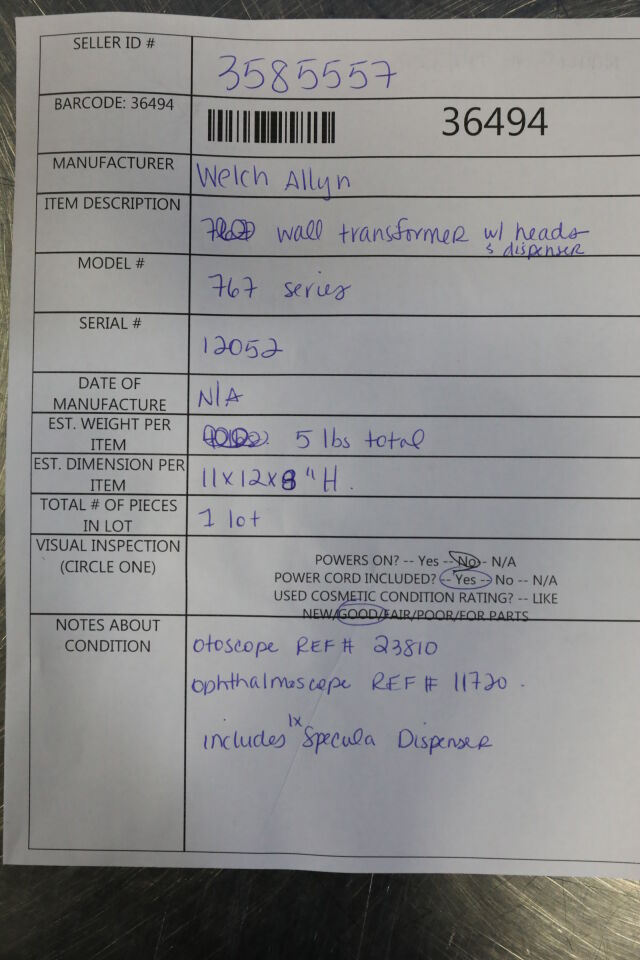 SELLER ID #
3585557
BARCODE: 36494
36494
MANUFACTURER
Welch Allyn
ITEM DESCRIPTION
wall transformer w/ heads
& dispenser
MODEL #
767 series
SERIAL #
12052
DATE OF
MANUFACTURE
N/A
EST. WEIGHT PER
ITEM
5 lbs total
EST. DIMENSION PER
ITEM
11x12x8"H.
TOTAL # OF PIECES
IN LOT
1 lot
VISUAL INSPECTION
(CIRCLE ONE)
POWERS ON? -- Yes -- No -- N/A
POWER CORD INCLUDED? -- Yes -- No -- N/A
USED COSMETIC CONDITION RATING? -- LIKE
NEW/GOOD/FAIR/POOR/FOR PARTS
NOTES ABOUT
CONDITION
otoscope REF# 23810
ophthalmoscope REF# 11720.
includes 1x Specula Dispenser